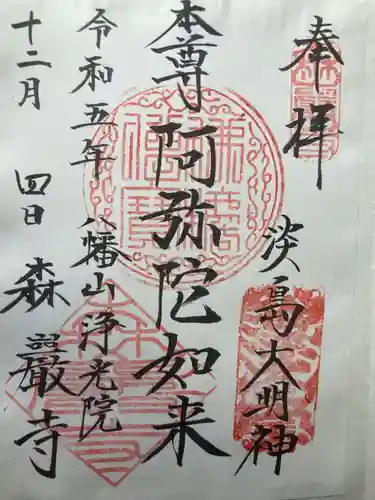 奉拝
淡島大明神
本尊阿弥陀如来
令和五年八幡山浄光院
十二月四日森巖寺
佛法僧寶